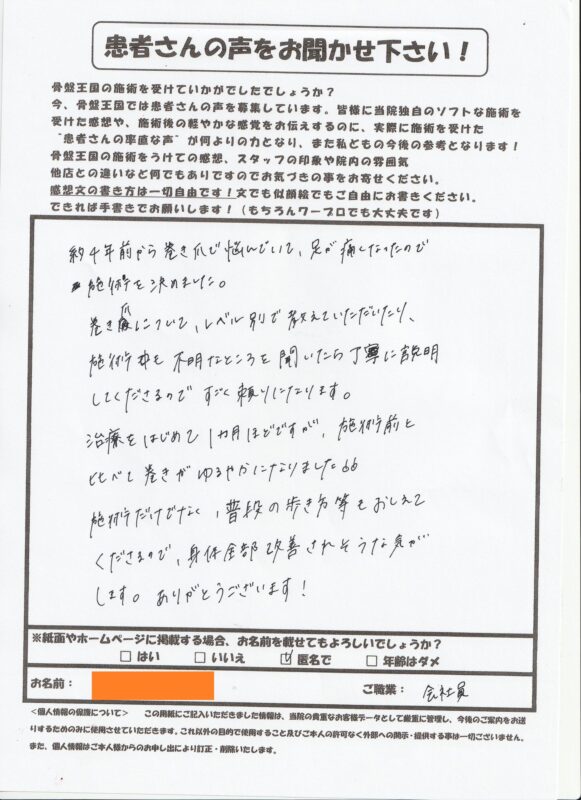 患者さんの声をお聞かせ下さい！
骨盤王国の施術を受けていかがでしたでしょうか？
今、骨盤王国では患者さんの声を募集しています。皆様に当院独自のソフトな施術を
受けた感想や、施術後の軽やかな感覚をお伝えするのに、実際に施術を受けた
"患者さんの率直な声"が何よりの力となり、また私どもの今後の参考となります！
骨盤王国の施術をうけての感想、スタッフの印象や院内の雰囲気
他店との違いなど何でもありですのでお気づきの事をお寄せください。
感想文の書き方は一切自由です！文でも似顔絵でもご自由にお書きください。
できれば手書きでお願いします！（もちろんワープロでも大丈夫です）
約4年前から巻き爪で悩んでいて、足が痛くなったので
施術を決めました。
巻き爪について、レベル別で教えていただいたり、
施術中も不明なところを聞いたら丁寧に説明
してくださるので すごく頼りになります。
治療をはじめて1カ月ほどですが、施術前と
比べて巻きがゆるやかになりました
施術だけでなく、普段の歩き方等もおしえて
くださるので、身体全部改善されそうな気が
します。ありがとうございます！
※紙面やホームページに掲載する場合、お名前を載せてもよろしいでしょうか？
□ はい □ いいえ ☑ 匿名で □ 年齢はダメ
お名前： ご職業： 会社員
＜個人情報の保護について＞ この用紙にご記入いただきました情報は、当院の貴重なお客様データとして厳重に管理し、今後のご案内をお送
りするためのみに使用させていただきます。これ以外の目的で使用すること及びご本人の許可なく外部への開示・提供する事は一切ございません。
また、個人情報はご本人様からのお申し出により訂正・削除いたします。